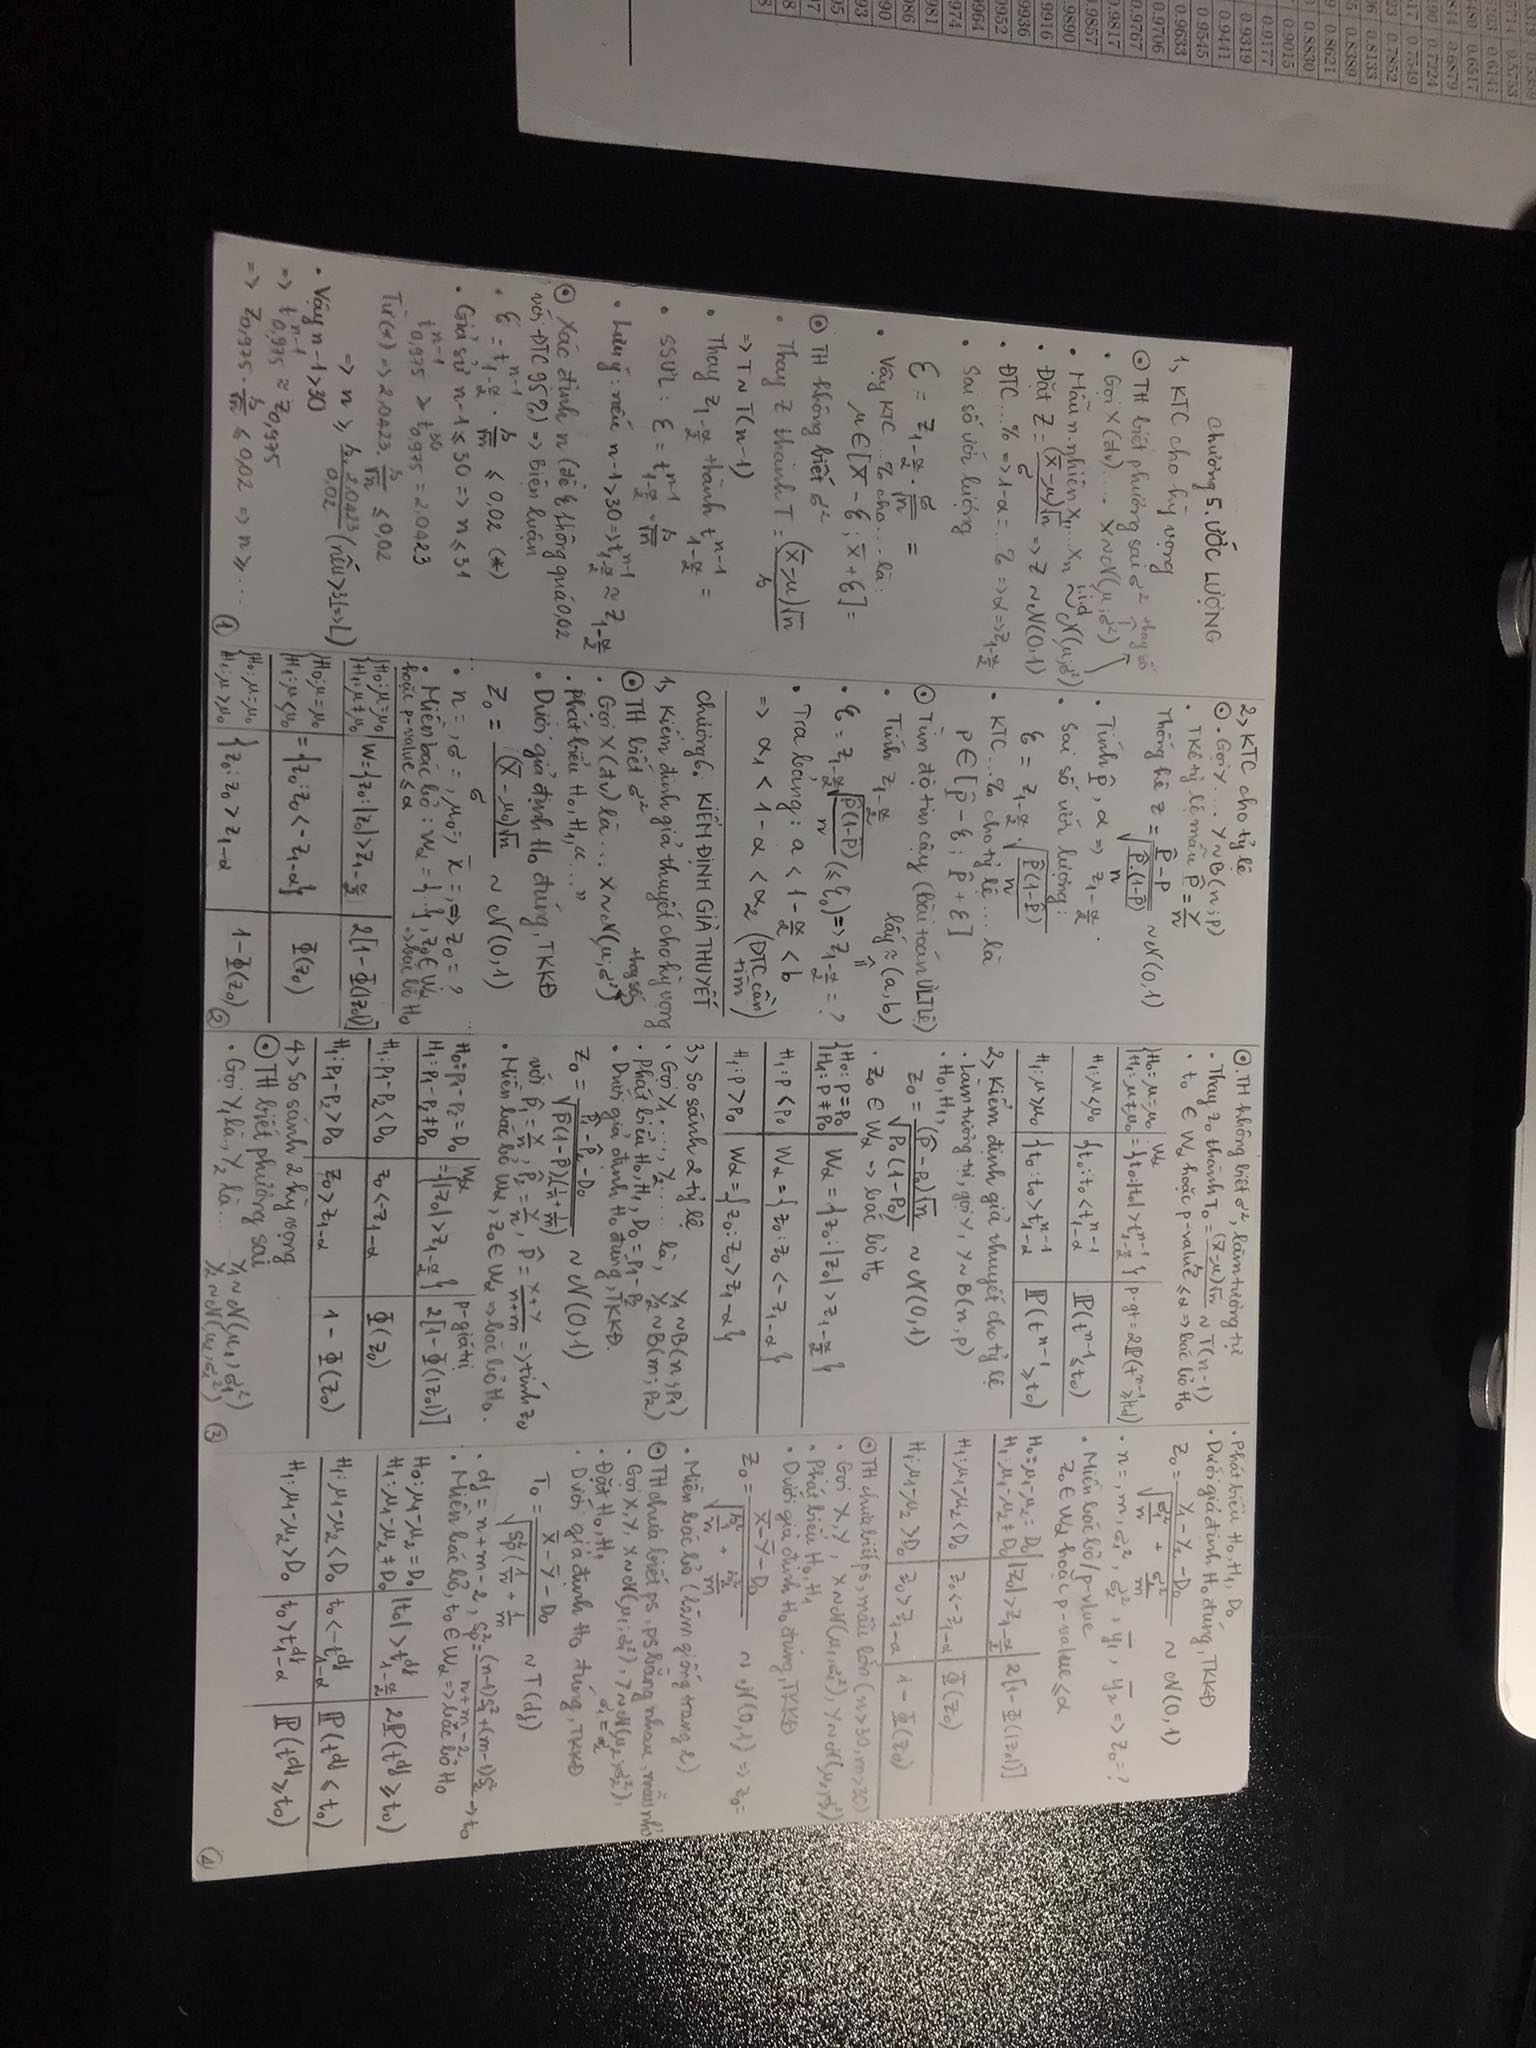 Chương 5. ƯỚC LƯỢNG
1, KTC cho kỳ vọng
⊙ TH biết phương sai σ² thay số
• Gọi X (đv)... X~N(μ;σ²)
• Mẫu n.nhiên X₁,...Xₙ iid ~ N(μ;σ²)
• Đặt Z = (X̄-μ)√n / σ => Z ~ N(0,1)
• ĐTC...% => 1-α = ...% => α => z_{1-α/2}
Sai số ước lượng
ε = z_{1-α/2} · σ/√n =
• Vậy KTC...% cho... là:
μ ∈ [X̄ - ε; X̄ + ε] =
⊙ TH không biết σ²
• Thay Z thành T = (X̄-μ)√n / s
=> T ~ T(n-1)
• Thay z_{1-α/2} thành t^{n-1}_{1-α/2} =
• SSƯL: ε = t^{n-1}_{1-α/2} · s/√n
• Lưu ý: nếu n-1>30 => t^{n-1}_{1-α/2} ≈ z_{1-α/2}
⊙ Xác định n (để ε không quá 0,02
với ĐTC 95%) => Biện luận
• ε = t^{n-1}_{1-α/2} · s/√n ≤ 0,02 (*)
• Giả sử n-1 ≤ 30 => n ≤ 31
t^{n-1}_{0,975} ≥ t^{30}_{0,975} = 2.0423
Từ (*) => 2.0423 · s/√n ≤ 0,02
=> n ≥ s.2.0423/0,02 (nếu >31=>L)
• Vậy n-1>30
=> t^{n-1}_{0,975} ≈ z_{0,975}
=> z_{0,975} · s/√n ≤ 0,02 => n ≥ ...
①
2> KTC cho tỷ lệ
⊙ • Gọi Y... Y~B(n;p)
• TKê tỷ lệ mẫu p̂ = Y/n
Thống kê Z = (p̂-p) / √(p̂.(1-p̂)/n) ~ N(0,1)
• Tính p̂, α => z_{1-α/2}.
• Sai số ước lượng:
ε = z_{1-α/2} · √(p̂(1-p̂)/n)
• KTC...% cho tỷ lệ... là
p ∈ [p̂ - ε; p̂ + ε]
⊙ Tìm độ tin cậy (bài toán ƯLTLệ)
• Tính z_{1-α/2} lấy ≈ (a,b)
• ε = z_{1-α/2} √(p̂(1-p̂)/n) (≤ ε₀) => z_{1-α/2} = ?
• Tra bảng: a < 1-α/2 < b
=> α₁ < 1-α < α₂ (ĐTC cần tìm)
CHƯƠNG 6. KIỂM ĐỊNH GIẢ THUYẾT
1, Kiểm định giả thuyết cho kỳ vọng
⊙ TH biết σ² thay số
• Gọi X (đv) là... X~N(μ;σ²)
• Phát biểu H₀, H₁, "..."
• Dưới giả định H₀ đúng, TKKĐ
Z₀ = (X̄ - μ₀)√n / σ ~ N(0,1)
• n=, σ=, μ₀=, x̄=, => z₀ = ?
• Miền bác bỏ: Wα = {...}, z₀ ∈ Wα
hoặc p-value ≤ α => bác bỏ H₀
{H₀: μ=μ₀ H₁: μ≠μ₀ | W = {z₀: |z₀| > z_{1-α/2}} | 2[1-Φ(|z₀|)]
{H₀: μ=μ₀ H₁: μ<μ₀ | = {z₀: z₀ < -z_{1-α}} | Φ(z₀)
{H₀: μ=μ₀ H₁: μ>μ₀ | {z₀: z₀ > z_{1-α} | 1-Φ(z₀)
②
⊙. TH không biết σ², làm tương tự
• Thay z₀ thành T₀ = (X̄-μ)√n / s ~ T(n-1)
• t₀ ∈ Wα hoặc p-value ≤ α => bác bỏ H₀
{H₀: μ=μ₀ H₁: μ≠μ₀ | Wα = {t₀: |t₀| > t^{n-1}_{1-α/2}} | p-gt = 2ℙ(t^{n-1} ≥ |t₀|)
H₁: μ<μ₀ | {t₀: t₀ < t^{n-1}_{1-α} | ℙ(t^{n-1} ≤ t₀)
H₁: μ>μ₀ | {t₀: t₀ > t^{n-1}_{1-α} | ℙ(t^{n-1} ≥ t₀)
2> Kiểm định giả thuyết cho tỷ lệ
• Làm tương tự, gọi Y, Y~B(n,p)
• H₀, H₁,
z₀ = (p̂-p₀)√n / √(p₀(1-p₀)) ~ N(0,1)
• z₀ ∈ Wα => bác bỏ H₀
{H₀: p=p₀ H₁: p≠p₀ | Wα = {z₀: |z₀| > z_{1-α/2}}
H₁: p<p₀ | Wα = {z₀: z₀ < -z_{1-α}}
H₁: p>p₀ | Wα = {z₀: z₀ > z_{1-α}}
3> So sánh 2 tỷ lệ
• Gọi Y₁...., Y₂.... là, Y₁~B(n;p₁) Y₂~B(m;p₂)
• Phát biểu H₀, H₁, D₀ = p₁-p₂
• Dưới giả định H₀ đúng, TKKĐ.
Z₀ = (p̂₁-p̂₂-D₀) / √(p̂(1-p̂)(1/n+1/m)) ~ N(0,1)
với p̂₁ = X/n, p̂₂ = Y/n, p̂ = (X+Y)/(n+m) => tính z₀
• Miền bác bỏ Wα, z₀ ∈ Wα => bác bỏ H₀.
H₀: p₁-p₂ = D₀ | Wα | p-giá trị
H₁: p₁-p₂ ≠ D₀ | = {|z₀| > z_{1-α/2}} | 2[1-Φ(|z₀|)]
H₁: p₁-p₂ < D₀ | z₀ < -z_{1-α} | Φ(z₀)
H₁: p₁-p₂ > D₀ | z₀ > z_{1-α} | 1-Φ(z₀)
4> So sánh 2 kỳ vọng
⊙ TH biết phương sai
• Gọi Y₁ là, Y₂ là... Y₁~N(μ₁;σ₁²) Y₂~N(μ₂;σ₂²)
③
• Phát biểu H₀, H₁, D₀
• Dưới giả định H₀ đúng, TKKĐ
Z₀ = (Y̅₁-Y̅₂-D₀) / √(σ₁²/n + σ₂²/m) ~ N(0,1)
• n=, m=, σ₁², σ₂², y̅₁, y̅₂ => z₀ = ?
• Miền bác bỏ/p-value
z₀ ∈ Wα hoặc p-value ≤ α
H₀: μ₁-μ₂ = D₀ H₁: μ₁-μ₂ ≠ D₀ | |z₀| > z_{1-α/2} | 2[1-Φ(|z₀|)]
H₁: μ₁-μ₂ < D₀ | z₀ < -z_{1-α} | Φ(z₀)
H₁: μ₁-μ₂ > D₀ | z₀ > z_{1-α} | 1-Φ(z₀)
⊙ TH chưa biết ps, mẫu lớn (n>30, m>30)
• Gọi X, Y, X~N(μ₁,σ₁²), Y~N(μ₂,σ₂²)
• Phát biểu H₀, H₁
• Dưới giả định H₀ đúng, TKKĐ
Z₀ = (X̄-Y̅-D₀) / √(s₁²/n + s₂²/m) ~ N(0,1) => z₀ =
• Miền bác bỏ (làm giống trang 2)
⊙ TH chưa biết ps, ps bằng nhau, mẫu nhỏ
• Gọi X, Y, X~N(μ₁;σ₁²), Y~N(μ₂;σ₂²),
• Đặt H₀, H₁ σ₁²=σ₂²
• Dưới giả định H₀ đúng, TKKĐ
T₀ = (X̄-Y̅-D₀) / √(Sp²(1/n + 1/m)) ~ T(df)
• df = n+m-2, Sp² = ((n-1)S₁²+(m-1)S₂²)/(n+m-2) => t₀
• Miền bác bỏ, t₀ ∈ Wα => bác bỏ H₀
H₀: μ₁-μ₂ = D₀ H₁: μ₁-μ₂ ≠ D₀ | |t₀| > t^{df}_{1-α/2} | 2ℙ(t^{df} ≥ t₀)
H₁: μ₁-μ₂ < D₀ | t₀ < -t^{df}_{1-α} | ℙ(t^{df} ≤ t₀)
H₁: μ₁-μ₂ > D₀ | t₀ > t^{df}_{1-α} | ℙ(t^{df} ≥ t₀)
④
0.6141
0.6517
0.6879
0.7224
0.7549
0.7852
0.8133
0.8389
0.8621
0.8830
0.9015
0.9177
0.9319
0.9441
0.9545
0.9633
0.9706
0.9767
0.9817
0.9857
0.9890
0.9916